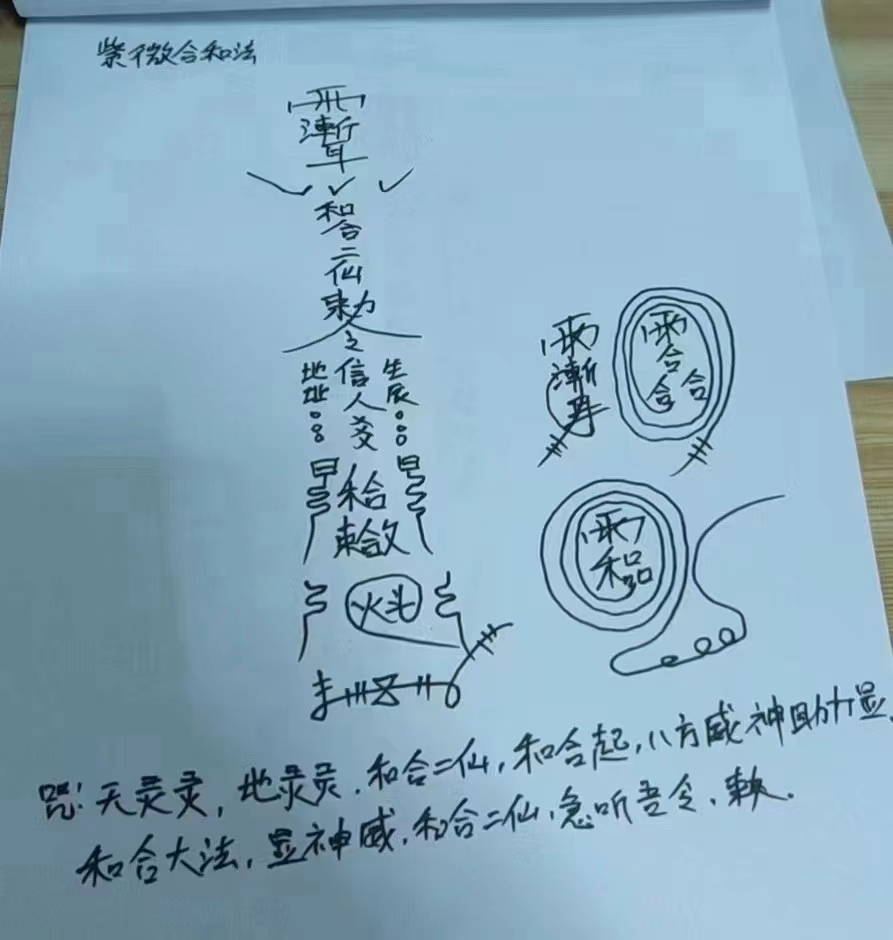 紫微合和法
雨
漸
耳
和合
二仙
敕
之
地址 信人 生辰
和合
敕
火
雨
漸
雨
合
合合
雨
和
咒:天灵灵,地灵灵.和合二仙,和合起,八方威神助力显.
和合大法,显神威,和合二仙,急听吾令,敕.